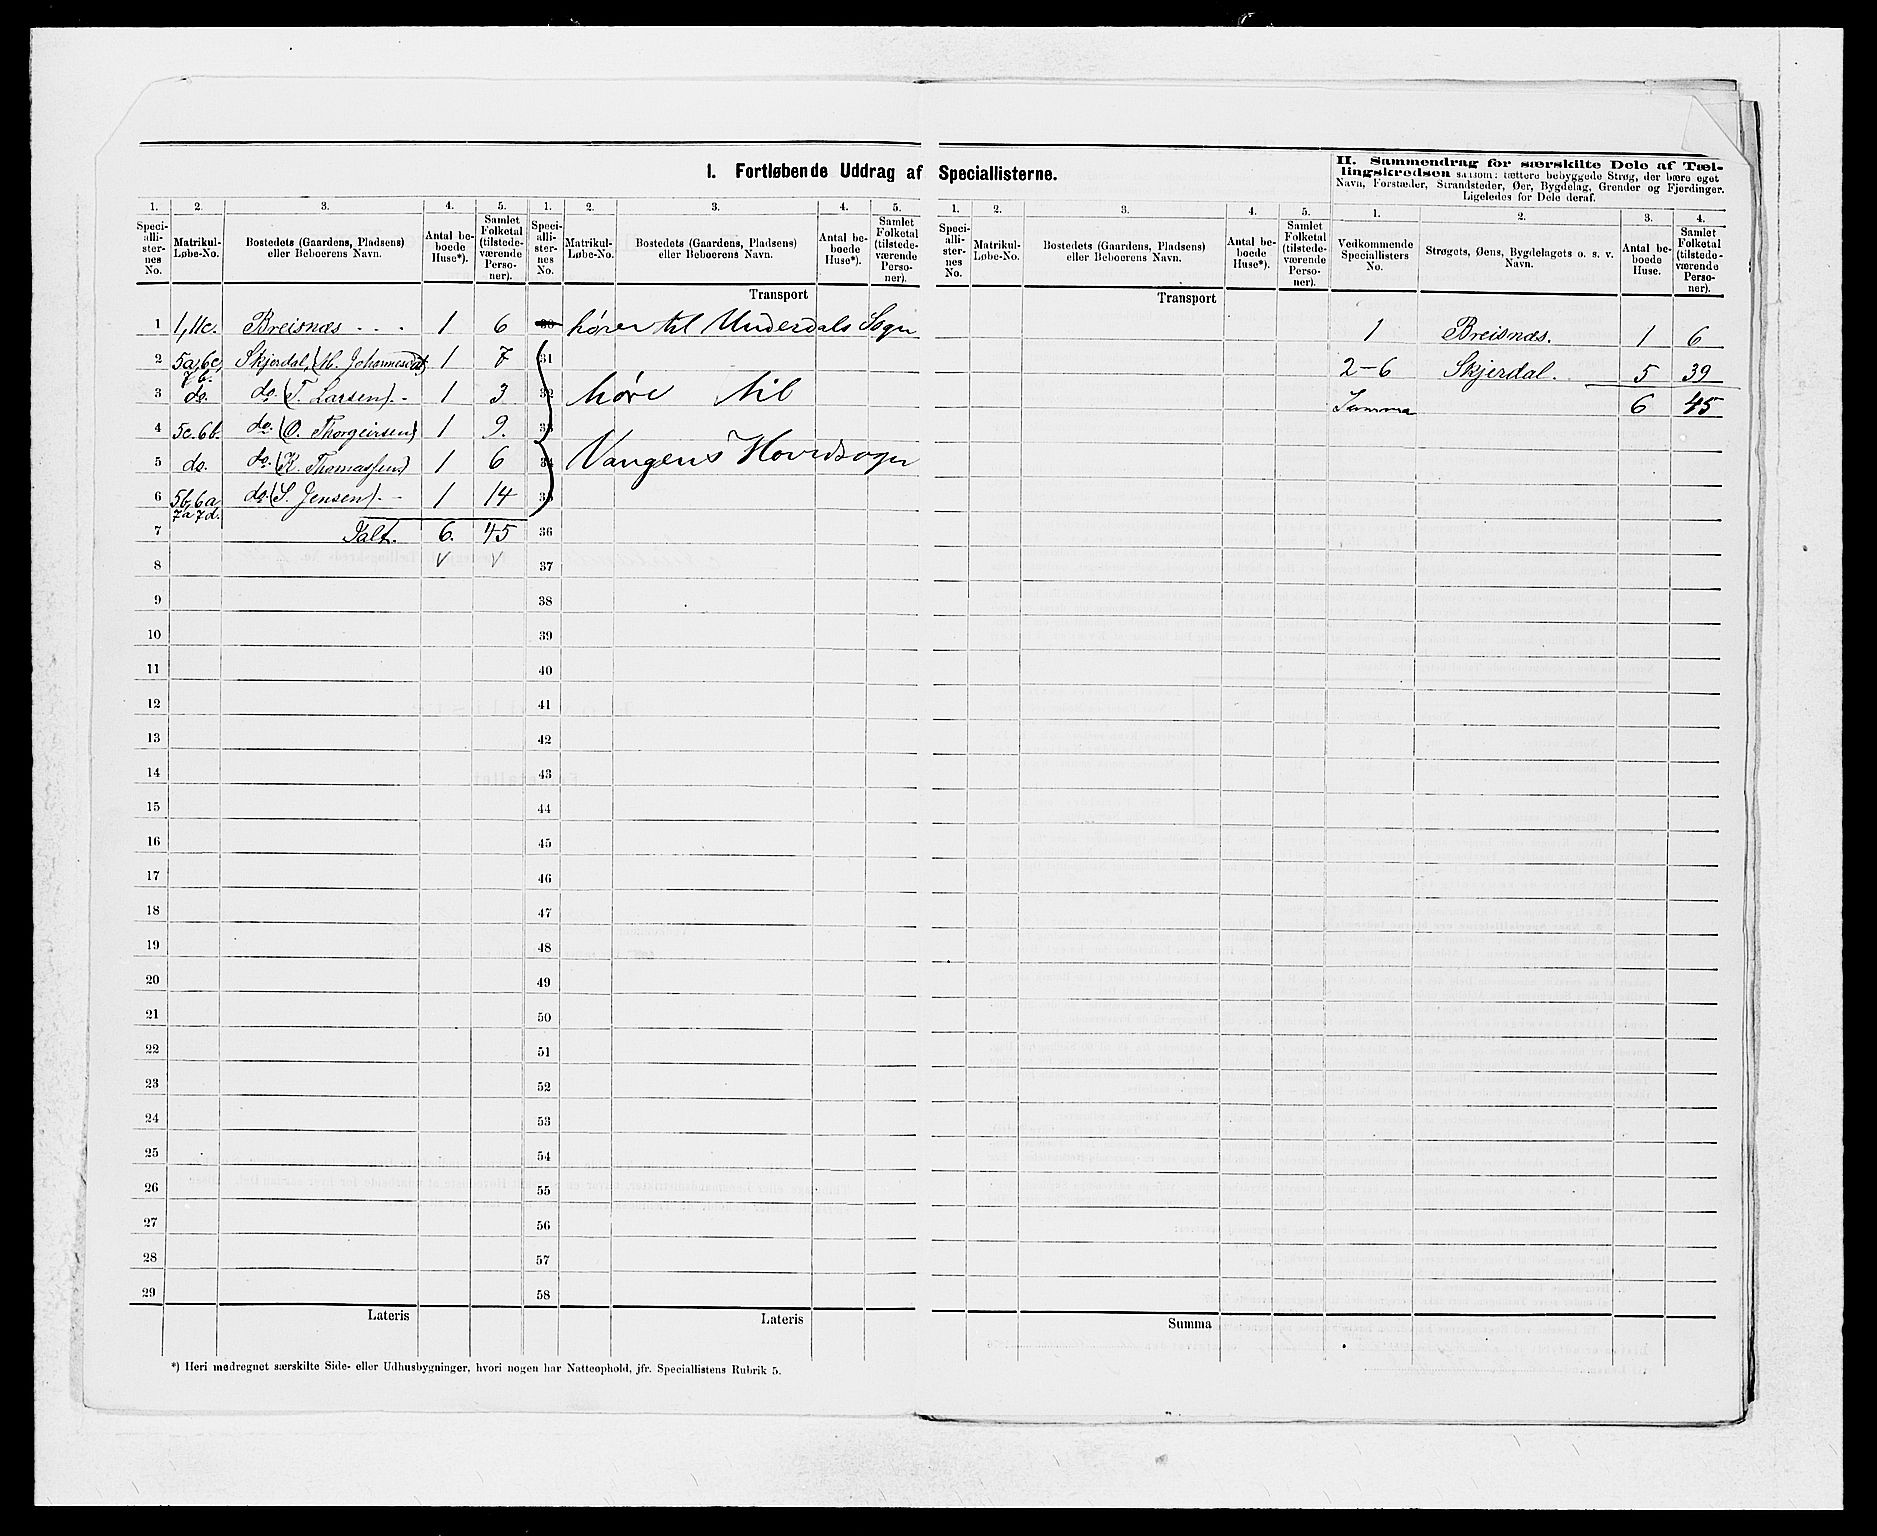 I. Fortløbende Uddrag af Speciallisterne.
II. Sammendrag for særskilte Dele af Tæl-
lingskredsen saasom: tættere bebyggede Strøg, der bære eget
Navn, Forstæder, Strandsteder, Øer, Bygdelag, Grender og Fjerdinger.
Ligeledes for Dele deraf.
1. 2. 3. 4. 5. 1. 2. 3. 4. 5. 1. 2. 3. 4. 5. 1. 2. 3. 4.
Speci-alli-ster-nes No. Matrikul-Løbe-No. Bostedets (Gaardens, Pladsens) eller Beboerens Navn. Antal be-boede Huse*). Samlet Folketal (tilstede-værende Perso-ner).
Speci-alli-ster-nes No. Matrikul-Løbe-No. Bostedets (Gaardens, Pladsens) eller Beboerens Navn. Antal be-boede Huse*). Samlet Folketal (tilstede-værende Perso-ner).
Speci-alli-ster-nes No. Matrikul-Løbe-No. Bostedets (Gaardens, Pladsens) eller Beboerens Navn. Antal be-boede Huse*). Samlet Folketal (tilstede-værende Perso-ner).
Vedkommende Speciallisters No. Strøgets, Øens, Bygdelagets o. s. v. Navn. Antal be-boede Huse. Samlet Folketal (tilstede-værende Perso-ner).
Transport Transport
1 1, 11c. Breisnæs - - - 1 6 30 hører til Underdals Sogn 1 Breisnæs. 1 6
2 5a, 6c, 7b. Skjerdal, (H. Johannesdat) 1 7 31 2-6 Skjerdal. 5 39
3 do. do. (T. Larsen). - 1 3 32 høre til Summa 6 45
4 5c. 6b. do. (O. Thorgeirsen) 1 9. 33
5 do. do. (K. Thomassen) 1 6 34 Vangens Hovedsogn
6 5b, 6a 7a 7d. do. (S. Jensen). - 1 14 35
7 Ialt. 6. 45 36
8 v v 37
9 38
10 39
11 40
12 41
13 42
14 43
15 44
16 45
17 46
18 47
19 48
20 49
21 50
22 51
23 52
24 53
25 54
26 55
27 56
28 57
29 58
Lateris Lateris Summa
*) Heri medregnet særskilte Side- eller Udhusbygninger, hvori nogen har Natteophold, jfr. Speciallistens Rubrik 5.